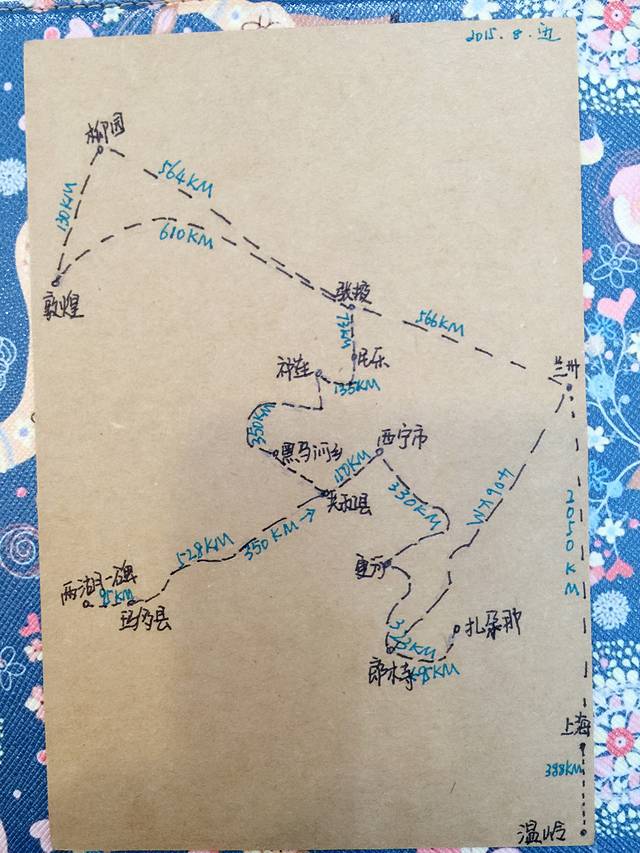 2015.8.
柳园
564KM
130KM
610KM
敦煌
张掖
566KM
73KM
民乐
兰州
祁连
135KM
350KM
黑马河乡
西宁市
150KM
406KM
共和县
330KM
2050KM
528KM
350KM→
夏河
两湖一碑
95KM
玛多县
扎尕那
郎木寺
95KM
上海
388KM
温岭